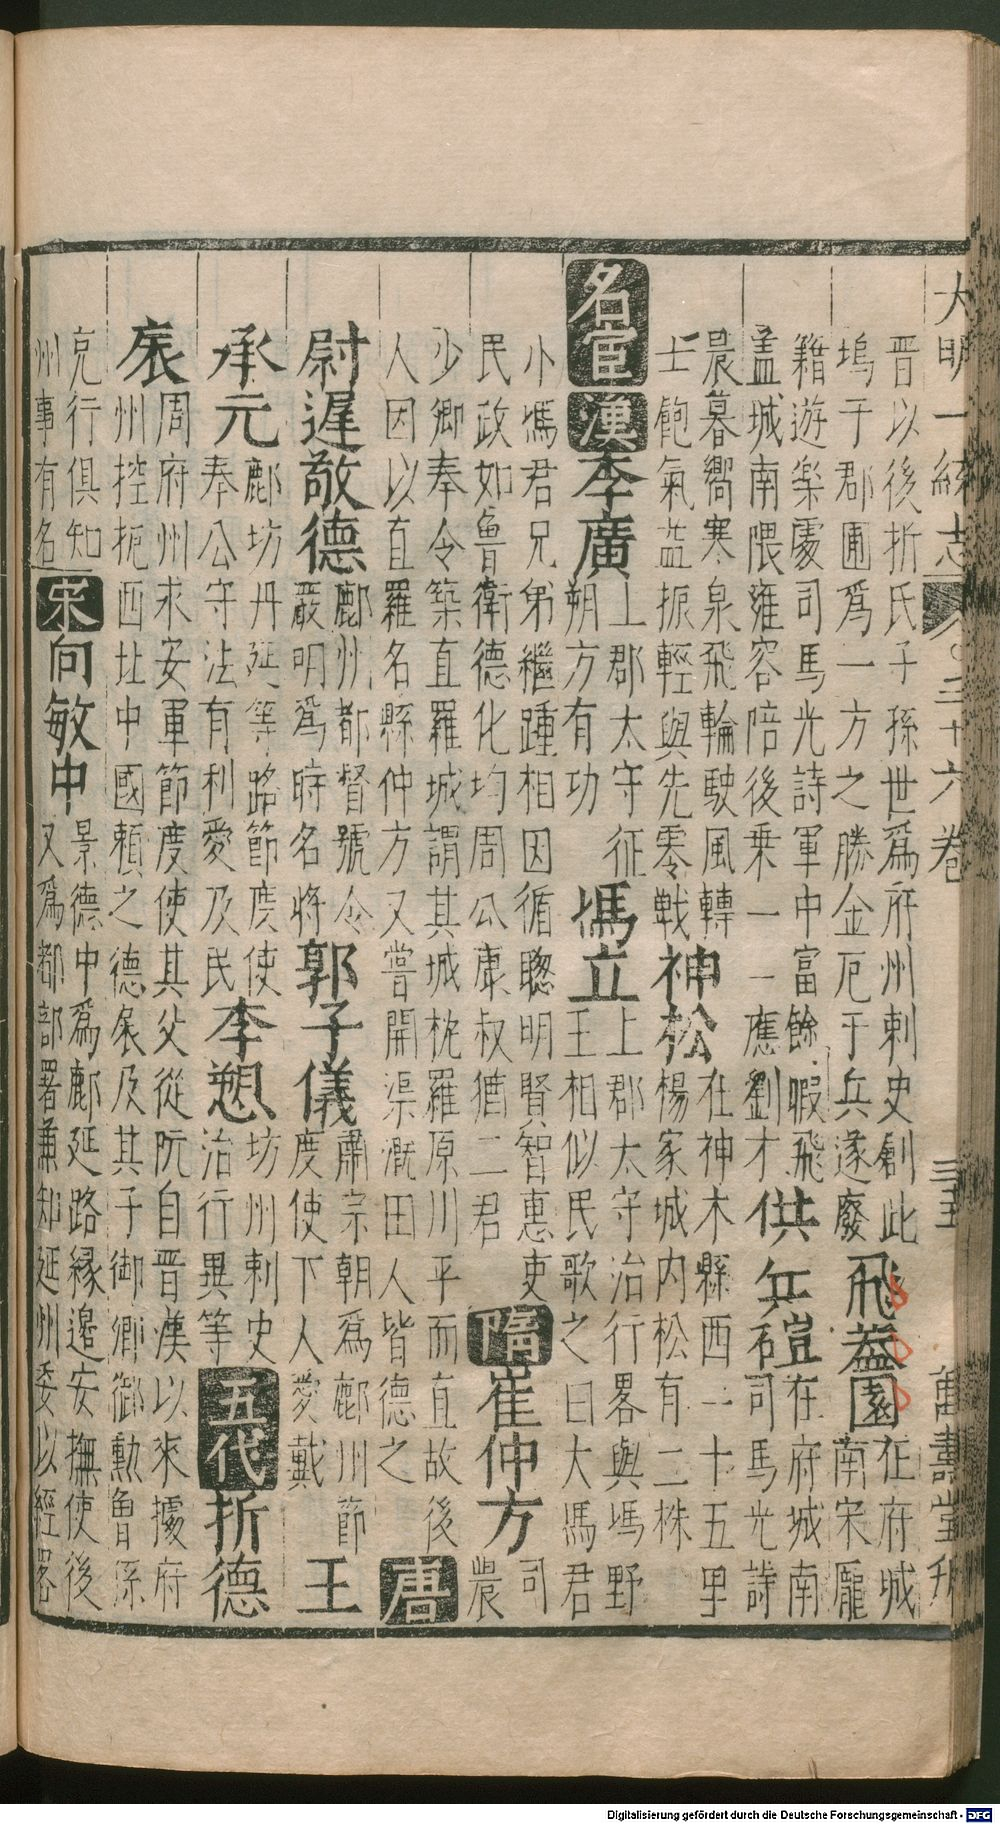 大明一統志 三十六卷 三十五 萬壽堂刋
晋以後折氏子孫世爲府州刺史創此
塢于郡圃爲一方之勝金厄于兵遂廢
飛蓋園
在府城
南宋龐
籍遊樂處司馬光詩軍中富餘暇飛
盖城南隈雍容陪後乗一一應劉才
供兵磑
在府城南
司馬光詩
晨暮嚮寒泉飛輪駛風轉
士飽氣益振輕與先零戰
神松
在神木縣西一十五里
楊家城内松有二株
名宦 漢 李廣
上郡太守征
朔方有功
馮立
上郡太守治行畧與馮野
王相似民歌之曰大馮君
小馮君兄弟繼踵相因循聰明賢智惠吏
民政如魯衛德化均周公康叔猶二君
隋 崔仲方
司
農
少卿奉令築直羅城謂其城枕羅原川平而直故後
人因以直羅名縣仲方又嘗開渠溉田人皆德之
唐
尉遲敬德
鄜州都督號令
嚴明爲時名將
郭子儀
肅宗朝爲鄜州節
度使下人愛戴
王
承元
鄜坊丹延等路節度使
奉公守法有利愛及民
李愬
坊州刺史
治行異等
五代 折德
扆
周府州永安軍節度使其父從阮自晋漢以來據府
州控扼西北中國頼之德扆及其子御卿御勳曾孫
克行俱知
州事有名
宋 向敏中
景德中爲鄜延路緣邊安撫使後
又爲都部署兼知延州委以經畧
Digitalisierung gefördert durch die Deutsche Forschungsgemeinschaft - DFG